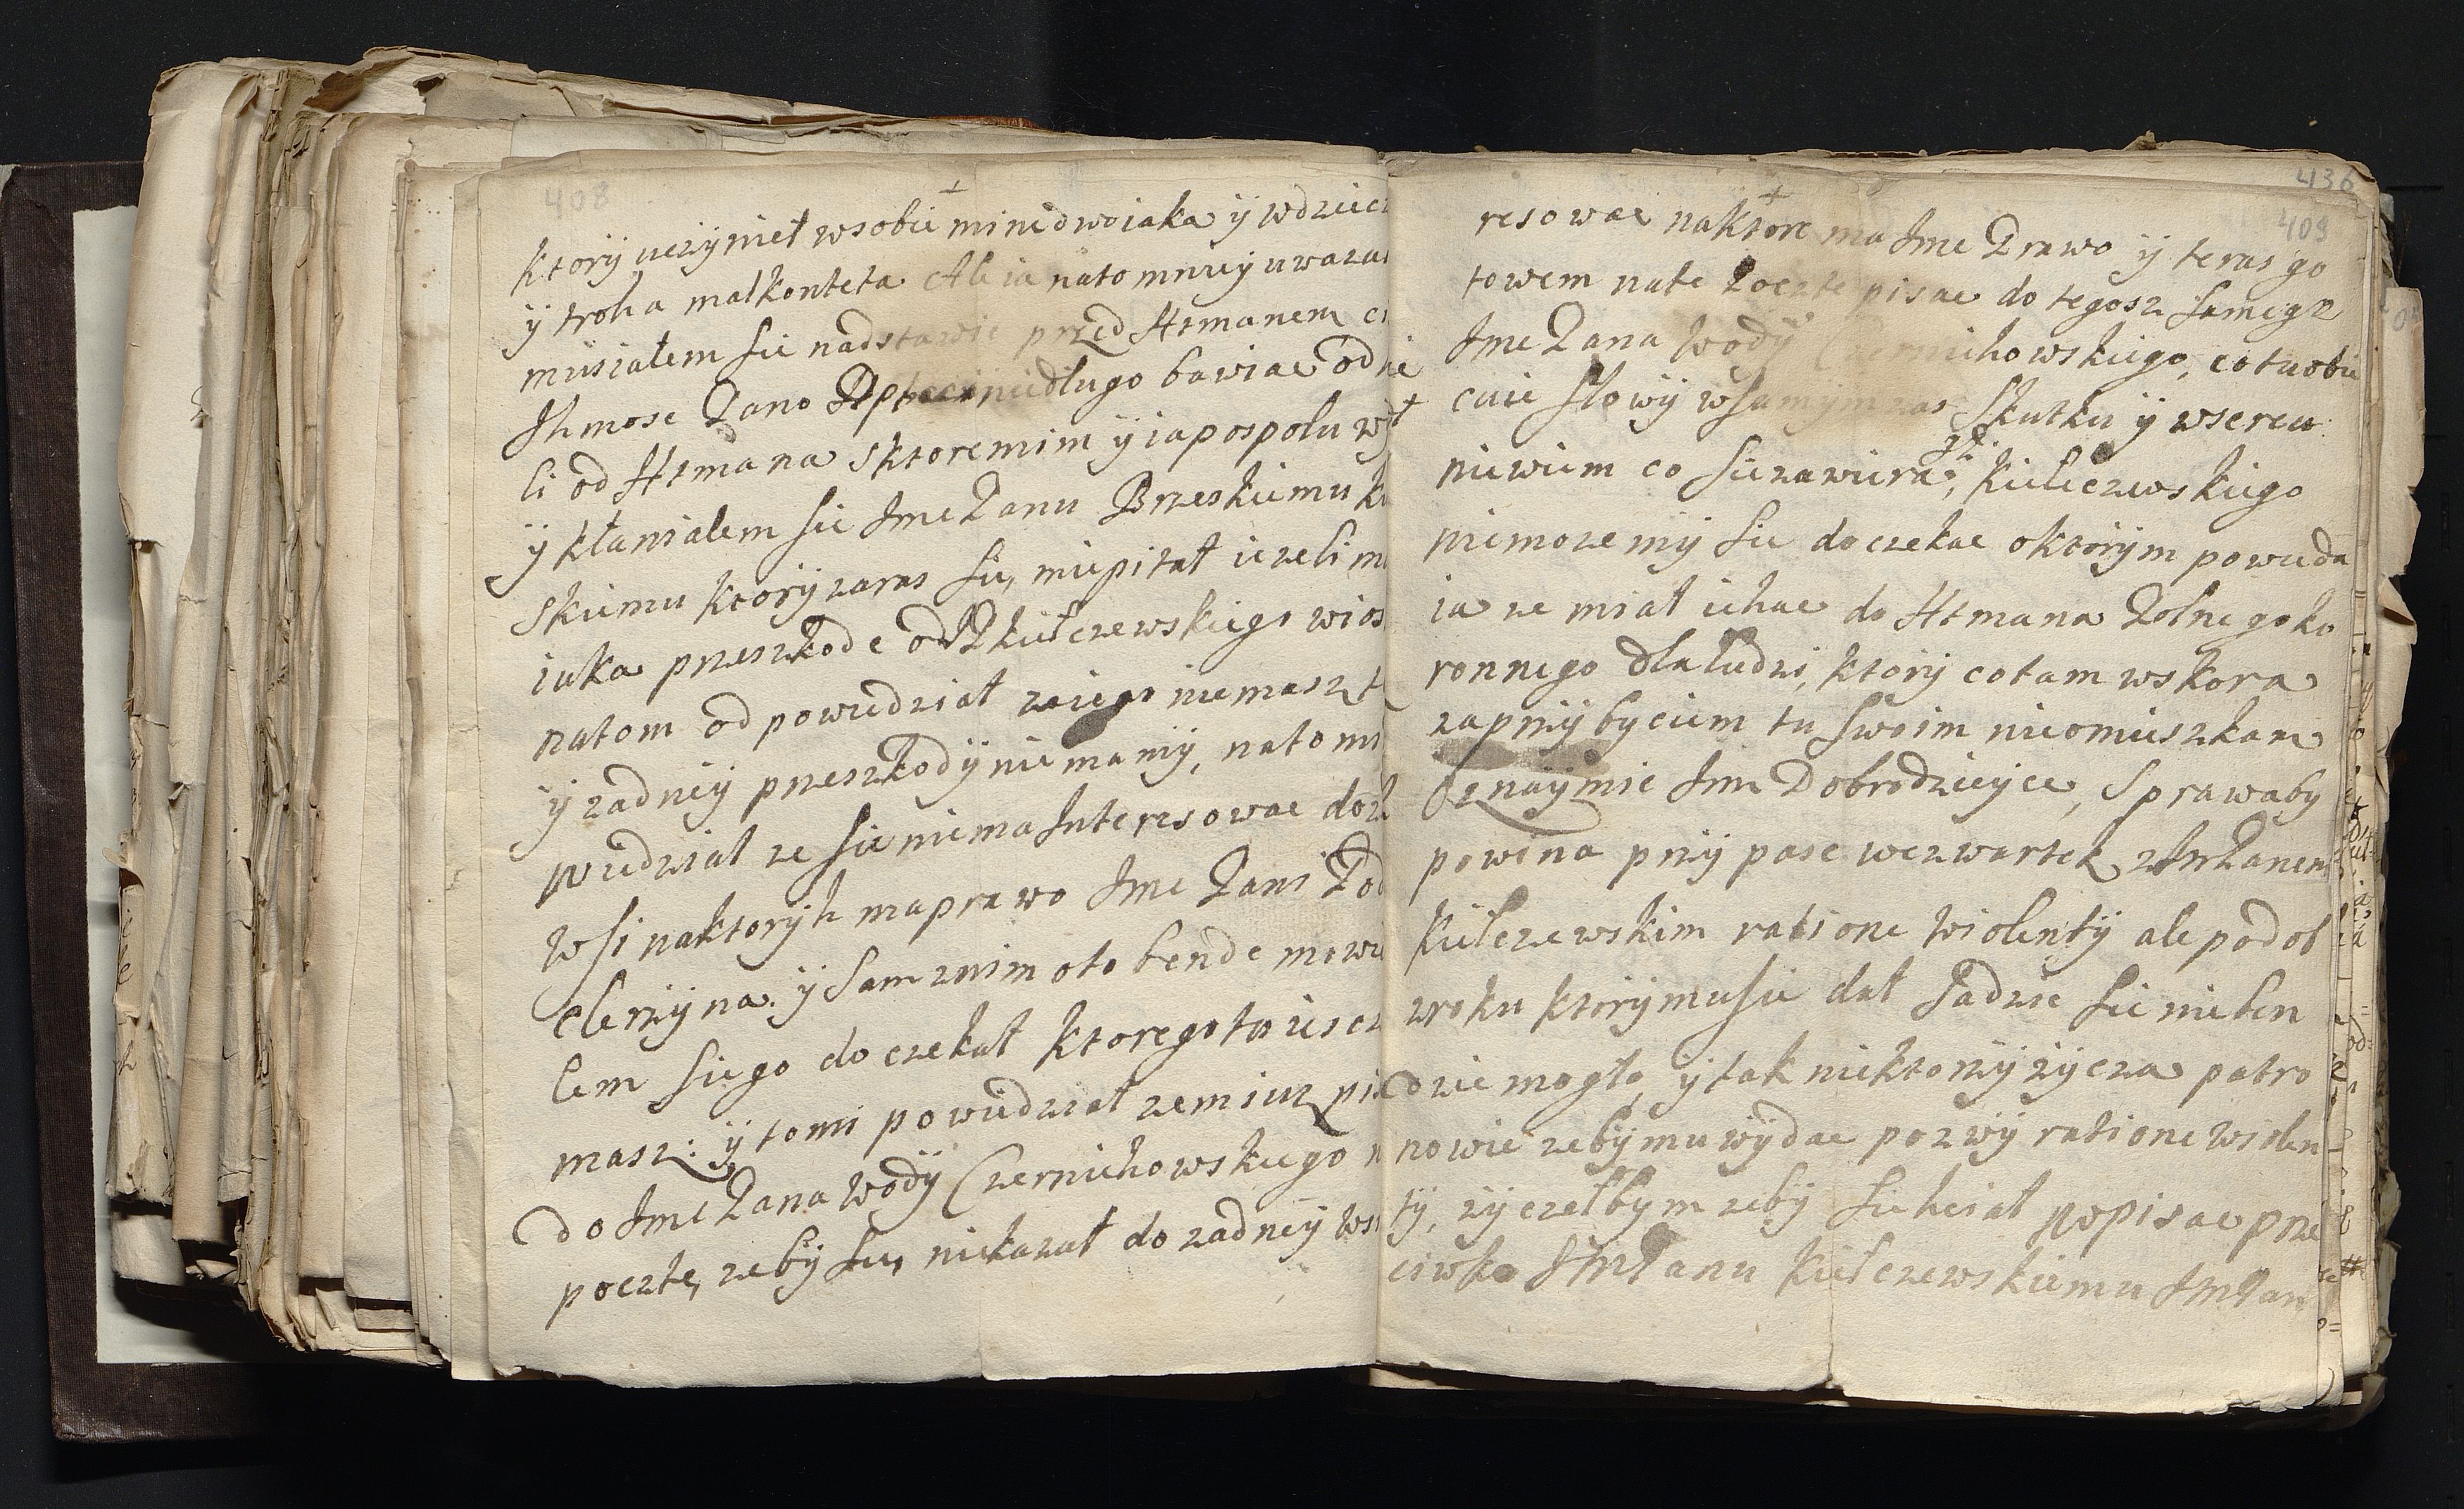 408
ktorÿ uczÿnieł wsobie minedwoiaka ÿ wdziec
ÿ troha malkonteta Ale ia nato mnieÿ uwaza
musiałem sie nadstawic przed Htmanem
Ihmosc Pano niedługo bawiac od nie
li od Htmana sktoremim ÿ ia pospolu
ÿ kłanialem sie Jme Panu Brzeskiemu
skiemu ktorÿ zaras sie, mie pitał iezeli
iaka przeszkode od P kiełczewskiego wios
natom odpowiedział ze iego niemasz
ÿ zadneÿ przeszkodÿ nie mamÿ, nato mi
powiedział ze sie niema Interesowac do
wsi naktorÿh ma prawo Jme Pani Pod
clerzÿna. ÿ sam znim oto bende mowi
lem sie go doczekał ktorego to iescz
masz: ÿ tomi powiedział zem iusz pi
do Jme Pana Wodÿ Czernichowskiego
poczte, zebÿ sie, niekazał do zadneÿ
436
409
resowac naktore ma Jme Prawo ÿ teras go
towem nate Poczte pisac do tegosz samego
Jme Pana Wodÿ Czernichowskiego, cotu obie
cuie słowÿ wsamÿm zas skutku ÿ wsercu
niewiem co sie zawiera, Kiełczewskiego
niemozemÿ sie doczekac oktorÿm powieda
ia ze miał iehac do Htmana Polnego ko
ronnego dla ludzi, ktorÿ cotam wskora
za przÿbyciem tu swoim nieomieszkam
Oznaÿmic Jme Dobrodzieÿce, Sprawaby
powina przÿpasc weczwartek z Jm Panem
Kiełczewskim ratione wiolentÿ ale podob
wroku ktorÿmu sie dał sadzic sie nieben
dzie mogło, ÿ tak niektorzÿ zÿcza patro
nowie zebÿmu wÿdac pozwÿ ratione wiolen
tÿ, zÿczełbym zebÿ sie hciał popisac prze
ciwko Jm Panu Kiełczewskiemu Jm Pan